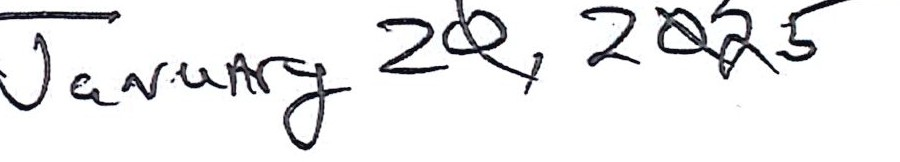 January 20, 2025